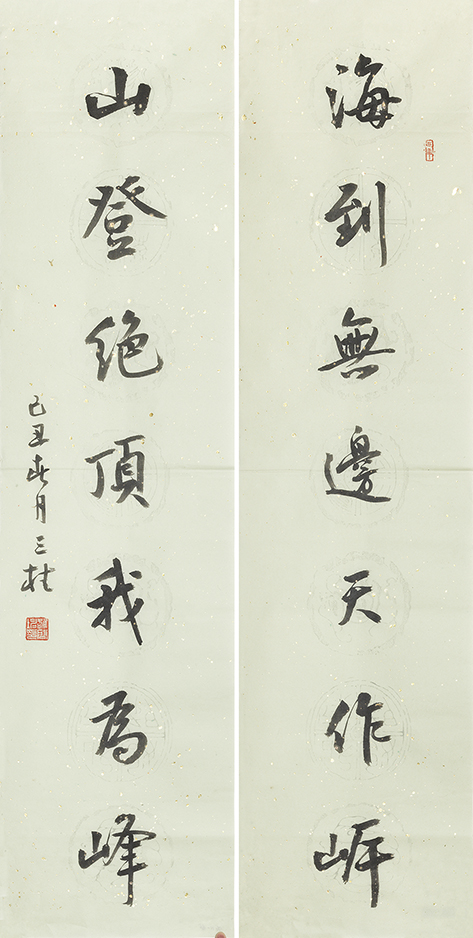 海到無邊天作岸
山登絕頂我為峰
己丑春月三桂